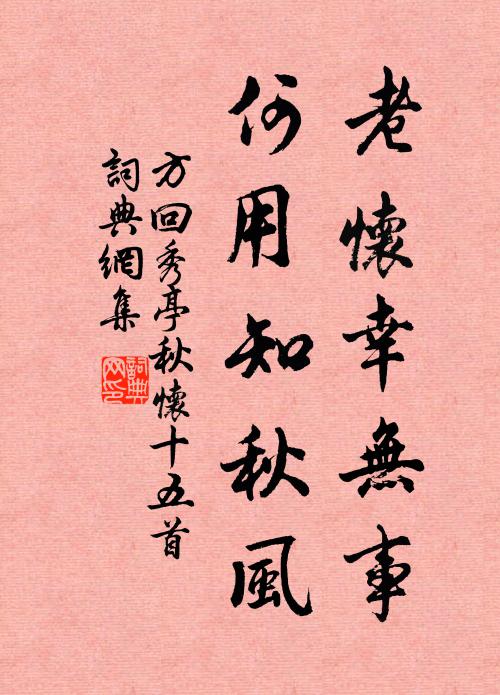 老懷幸無事
何用知秋風
方回秀亭秋懷十五首
詞典網集
詞典網印